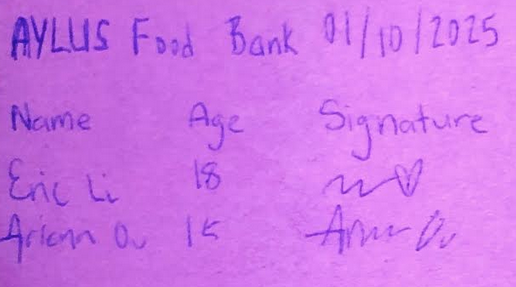 AYLUS Food Bank 01/10/2025
Name Age Signature
Eric Li 18
Ariann Ou 15